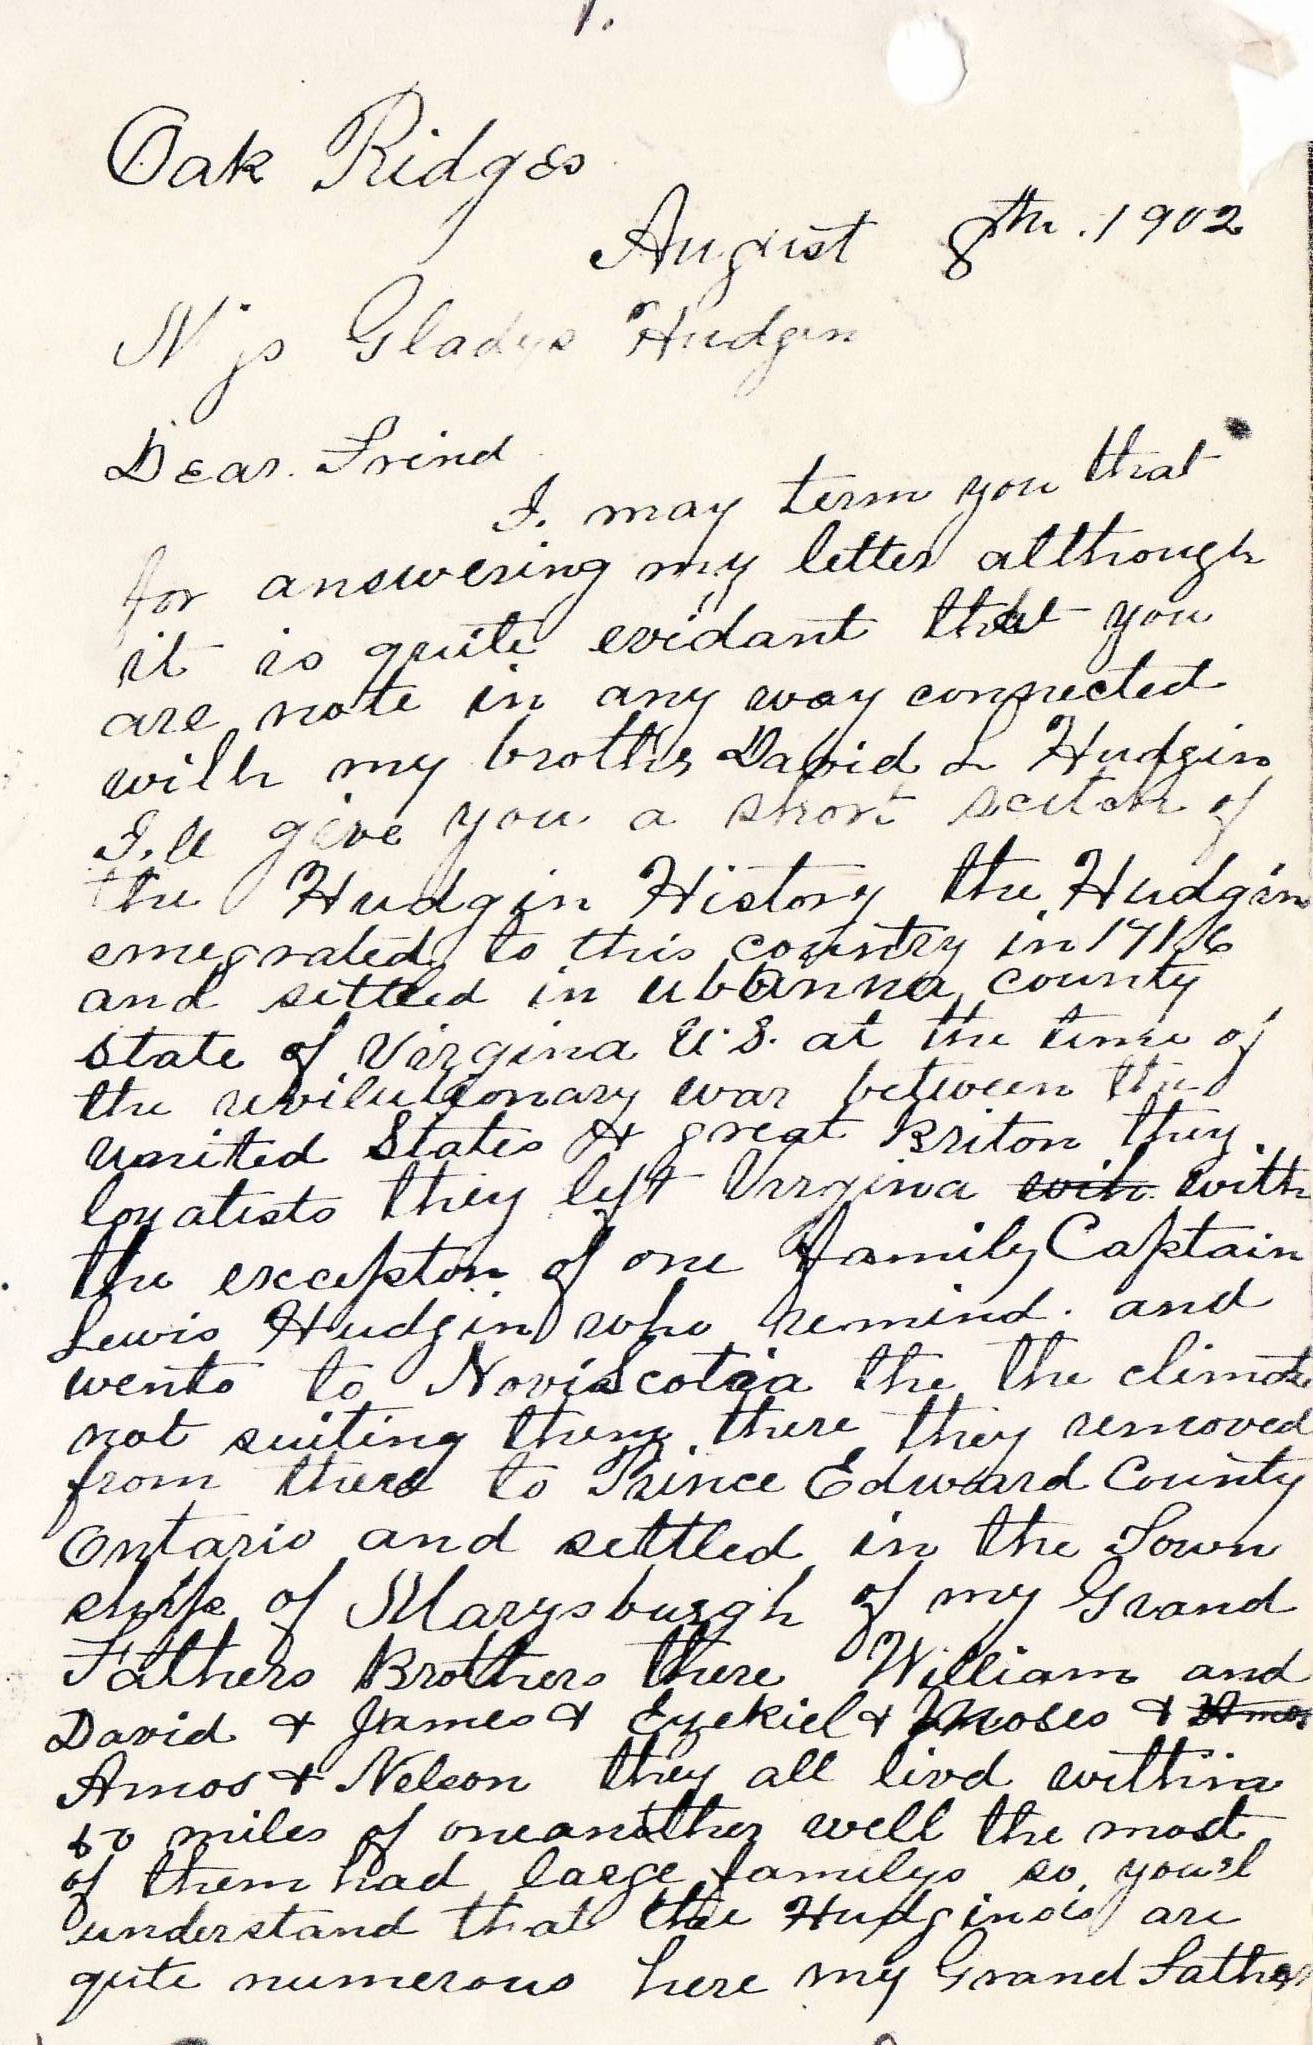 1.
Oak Ridges
August 8th. 1902
Gladys Hudgin
Dear. Frind
I. may term you that
for answering my letter although
it is quite evidant that you
are note in any way connected
with my brother David L Hudgin
I.ll give you a short scitch of
the Hudgin History the Hudgin
emegrated to this country in
and settled in ubanna county
State of Virgina U.S. at the time of
the revilutionary war between the
united States & great Briton they
loyatists they left Virgina with with
the excepton of one family Captain
Lewis Hudgin who remind. and
wents to Novia Scotaia the the climate
not suiting them there they removed
from there to Prince Edward County
Ontario and settled in the Town
ship of Marysburgh of my Grand
Fathers Brothers there William and
David & James & Ezekiel & Moses & Amos
Amos & Nelson they all livd within
miles of oneanother well the most
of them had large familys so you'l
understand that the Hudginds are
quite numerous here my Grand Father